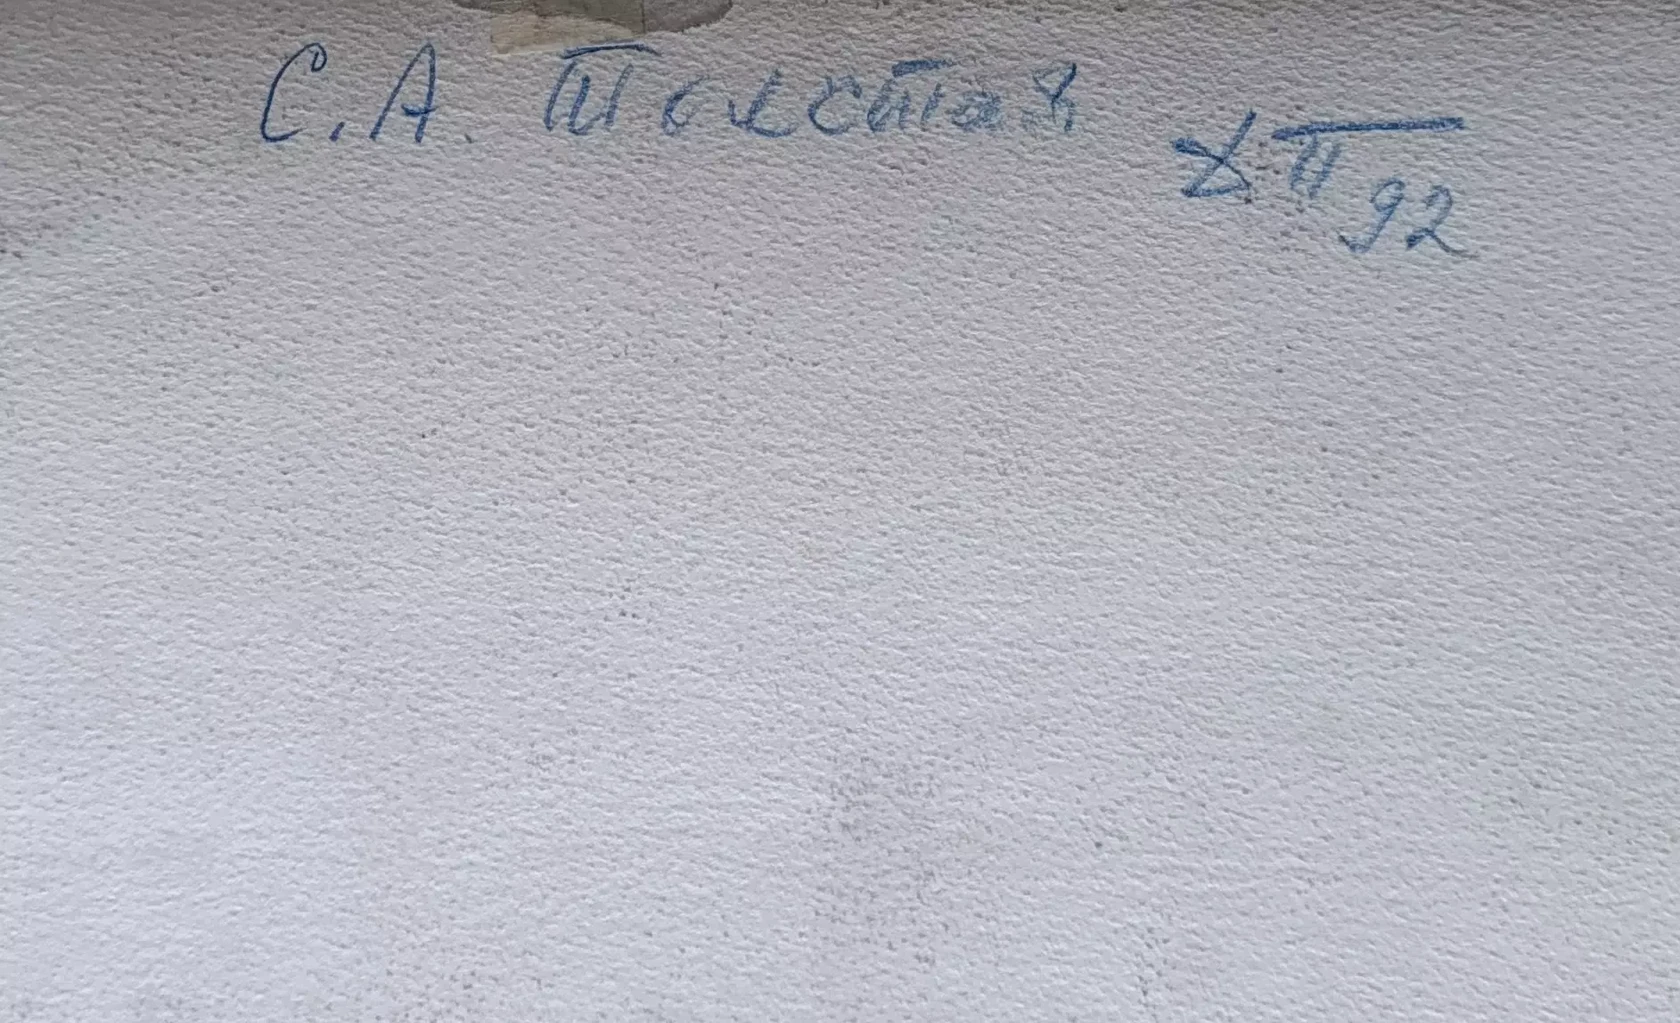 С. А. Толстая
XII 92